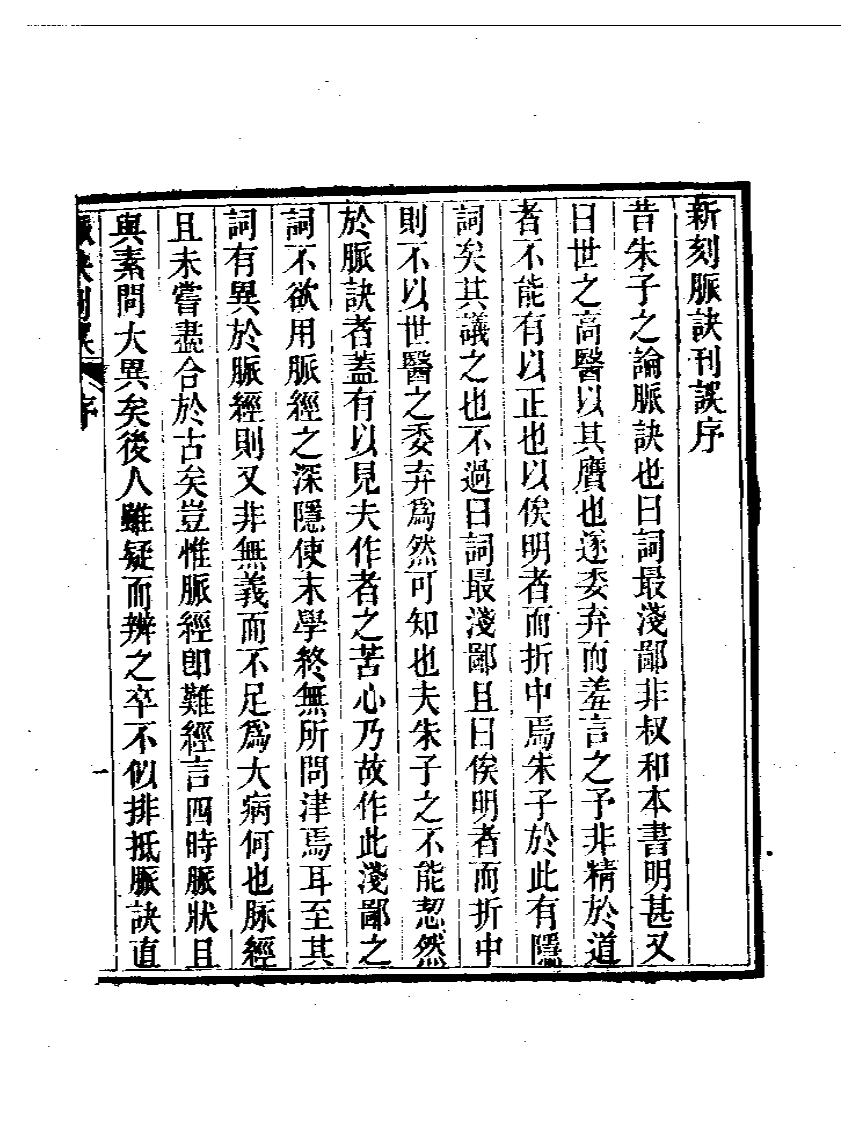 新刻脈訣刊誤序
昔朱子之論脈訣也曰詞最淺鄙非叔和本書明甚又
曰世之高醫以其贋也逐委弃而羞言之予非精於道
者不能有以正也以俟明者而折中焉朱子於此有隱
詞矣其議之也不過曰詞最淺鄙且曰俟明者而折中
則不以世醫之委弃爲然可知也夫朱子之不能恝然
於脈訣者蓋有以見夫作者之苦心乃故作此淺鄙之
詞不欲用脈經之深隱使末學終無所問津焉耳至其
詞有異於脈經則又非無義而不足爲大病何也脉經
且未嘗盡合於古矣豈惟脈經卽難經言四時脈狀且
與素問大異矣後人雖疑而辨之卒不似排抵脈訣直
脈訣刊誤 序
一